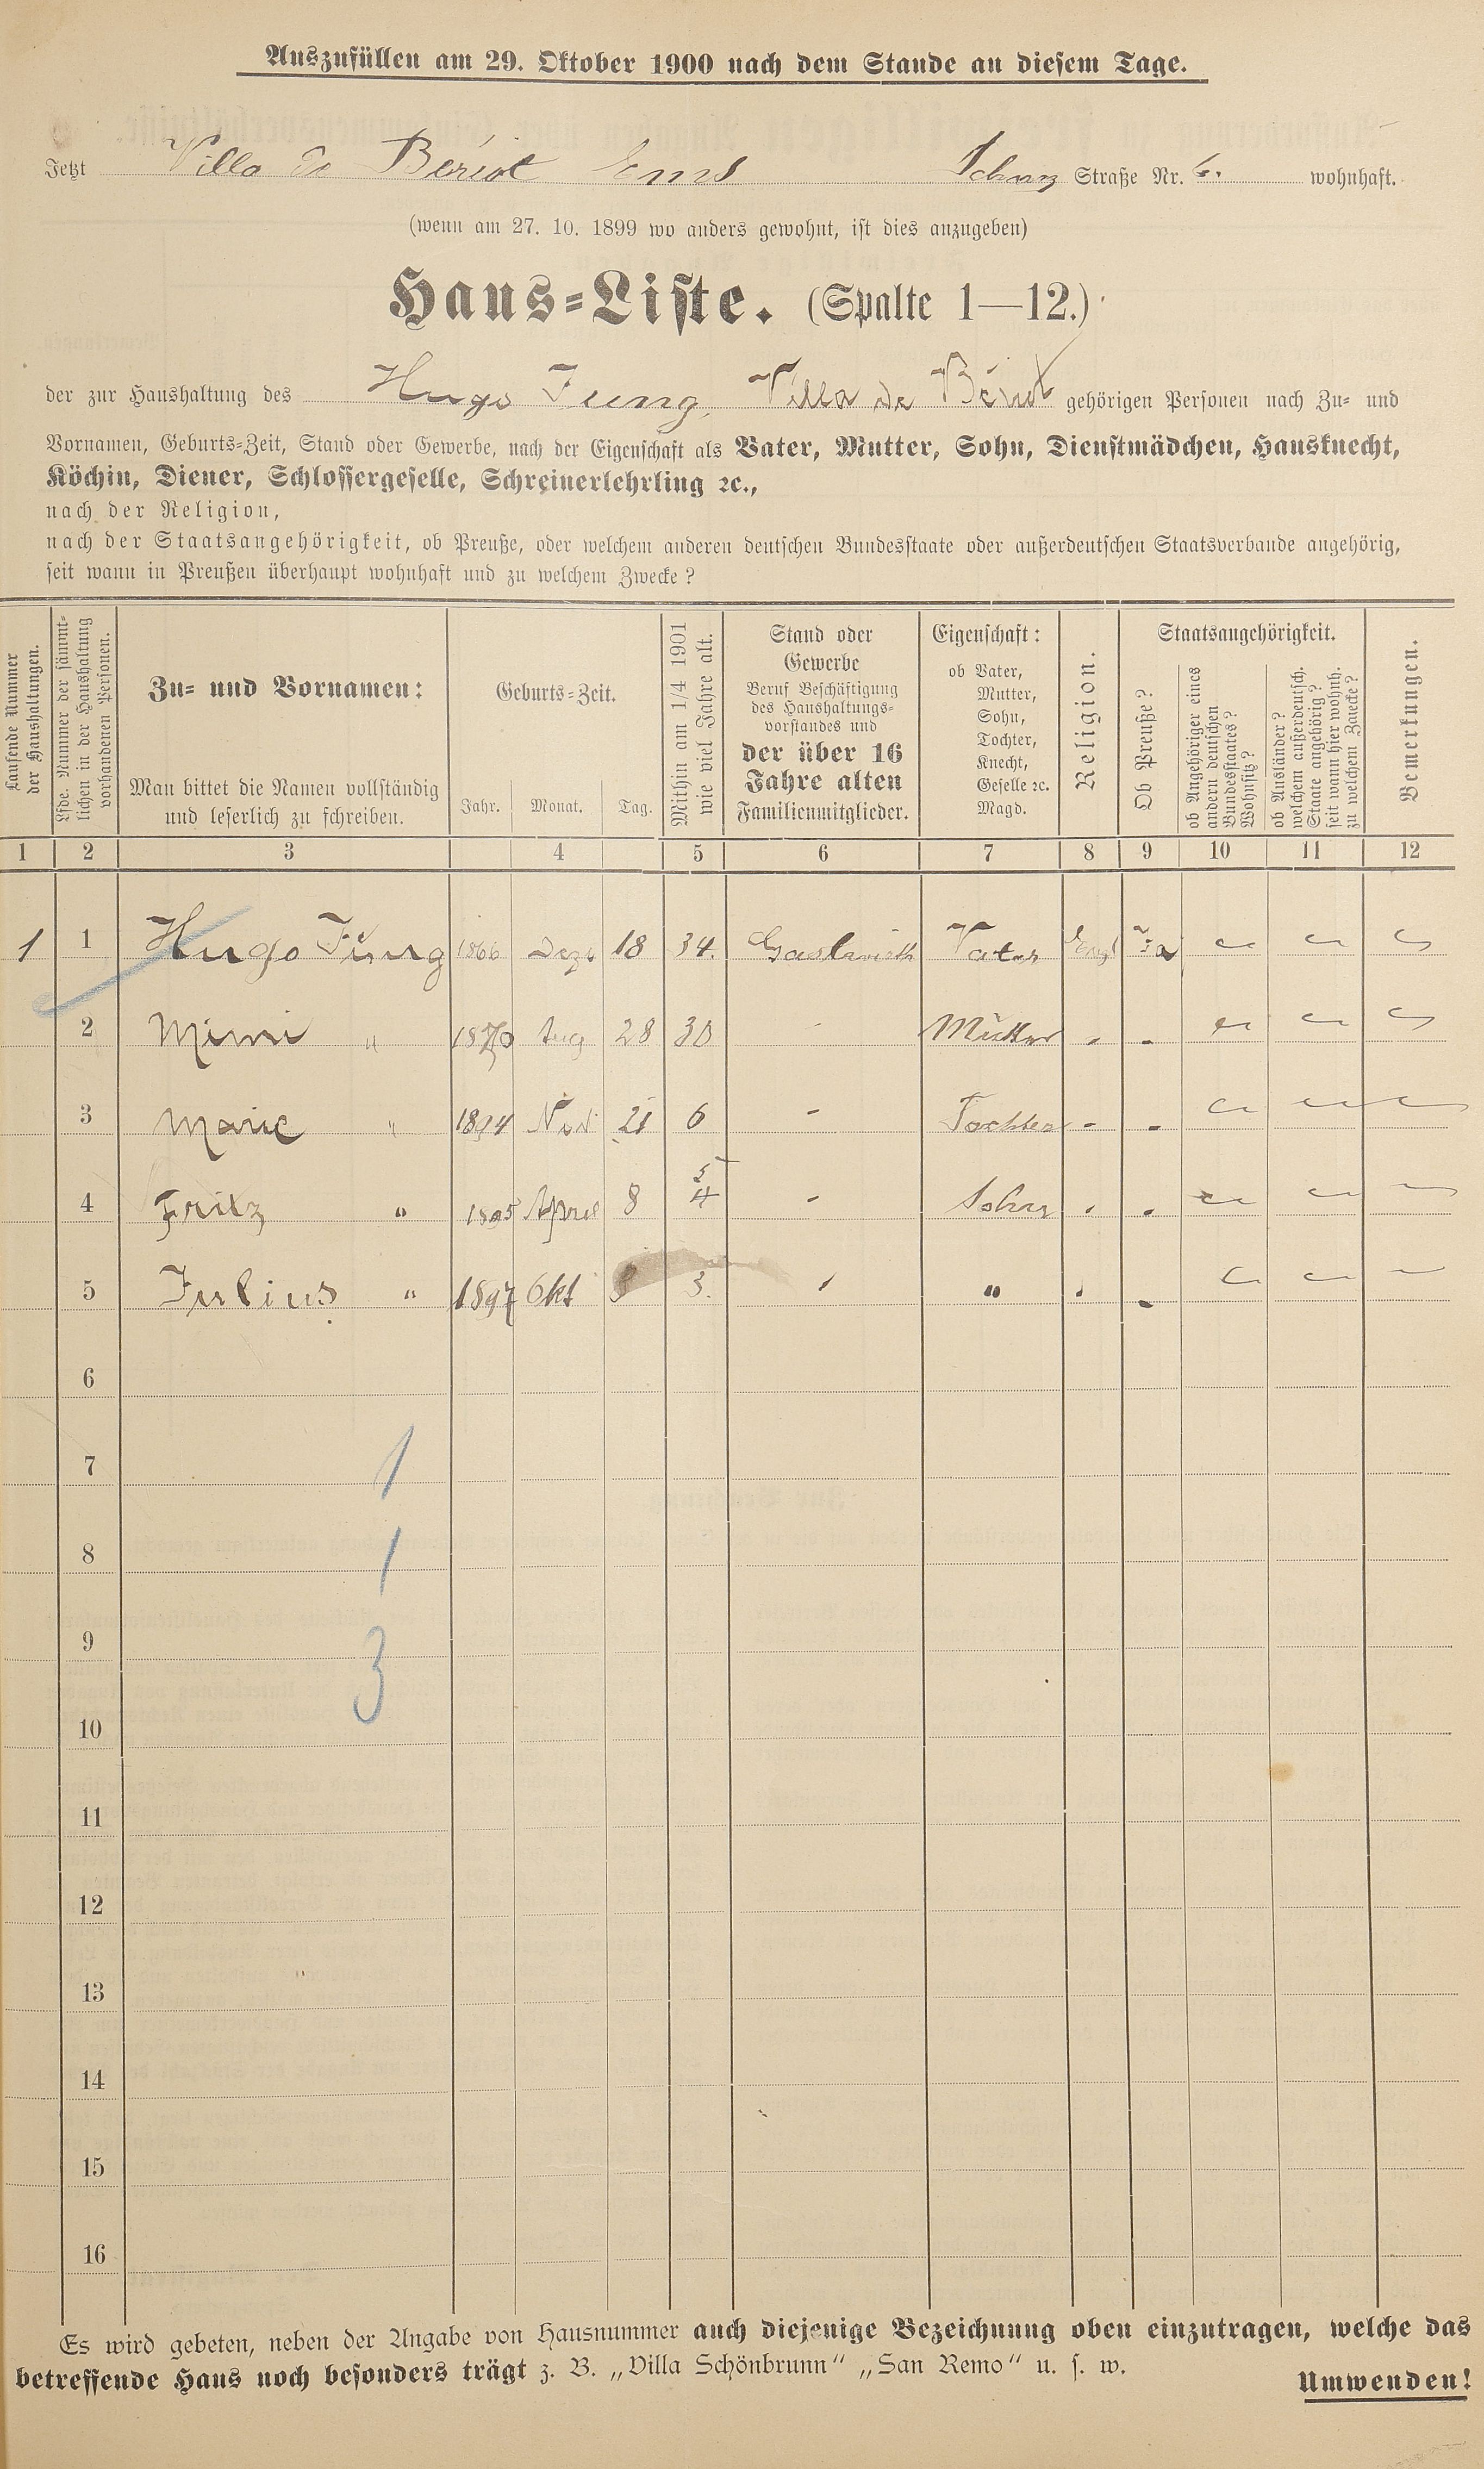 Auszufüllen am 29. Oktober 1900 nach dem Stande an diesem Tage.
Jetzt Villa de Bériot Ems Schanz Straße Nr. 6. wohnhaft.
(wenn am 27. 10. 1899 wo anders gewohnt, ist dies anzugeben)
Haus-Liste. (Spalte 1—12.)
der zur Haushaltung des Hugo Jung, Villa de Bériot gehörigen Personen nach Zu- und
Vornamen, Geburts-Zeit, Stand oder Gewerbe, nach der Eigenschaft als Vater, Mutter, Sohn, Dienstmädchen, Hausknecht,
Köchin, Diener, Schlossergeselle, Schreinerlehrling ꝛc.,
nach der Religion,
nach der Staatsangehörigkeit, ob Preuße, oder welchem anderen deutschen Bundesstaate oder außerdeutschen Staatsverbande angehörig,
seit wann in Preußen überhaupt wohnhaft und zu welchem Zwecke?
Laufende Nummer
der Haushaltungen.
Lfde. Nummer der sämmt-
lichen in der Haushaltung
vorhandenen Personen.
Zu- und Vornamen:
Man bittet die Namen vollständig
und leserlich zu schreiben.
Geburts-Zeit.
Jahr. Monat. Tag.
Mithin am 1/4 1901
wie viel Jahre alt.
Stand oder
Gewerbe
Beruf Beschäftigung
des Haushaltungs-
vorstandes und
der über 16
Jahre alten
Familienmitglieder.
Eigenschaft:
ob Vater,
Mutter,
Sohn,
Tochter,
Knecht,
Geselle ꝛc.
Magd.
Religion.
Staatsangehörigkeit.
Ob Preuße?
ob Angehöriger eines
andern deutschen
Bundesstaates?
Wohnsitz?
ob Ausländer?
welchem außerdeutsch.
Staate angehörig?
seit wann hier wohnh.
zu welchem Zwecke?
Bemerkungen.
1 2 3 4 5 6 7 8 9 10 11 12
1 1 Hugo Jung 1866 Dezb 18 34. Gastwirth Vater Evgl Ja
2 Mimi " 1870 Aug 28 30 Mutter
3 Marie " 1894 Nov 21 6 - Tochter - -
4 Fritz " 1895 April 8 5 4 - Sohn
5 Julius " 1897 Okt 3. "
6
7 1
8 1
9 3
10
11
12
13
14
15
16
Es wird gebeten, neben der Angabe von Hausnummer auch diejenige Bezeichnung oben einzutragen, welche das
betreffende Haus noch besonders trägt z. B. „Villa Schönbrunn“ „San Remo“ u. s. w.
Umwenden!